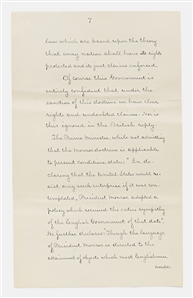 7
law which are based upon the theory
that every nation shall have its rights
protected and its just claims enforced.
Of course this Government is
entirely confident that under the
sanction of this doctrine we have clear
rights and undoubted claims. Nor is
this ignored in the British reply.
The Prime Minister, while not admitting
that the Monroe doctrine is applicable
to present conditions states: "In de-
claring that the United States would re-
sist any such enterprise if it was con-
templated, President Monroe adopted a
policy which received the entire sympathy
of the English Government of that date."
He further declares: "Though the language
of President Monroe is directed to the
attainment of objects which most Englishmen
would